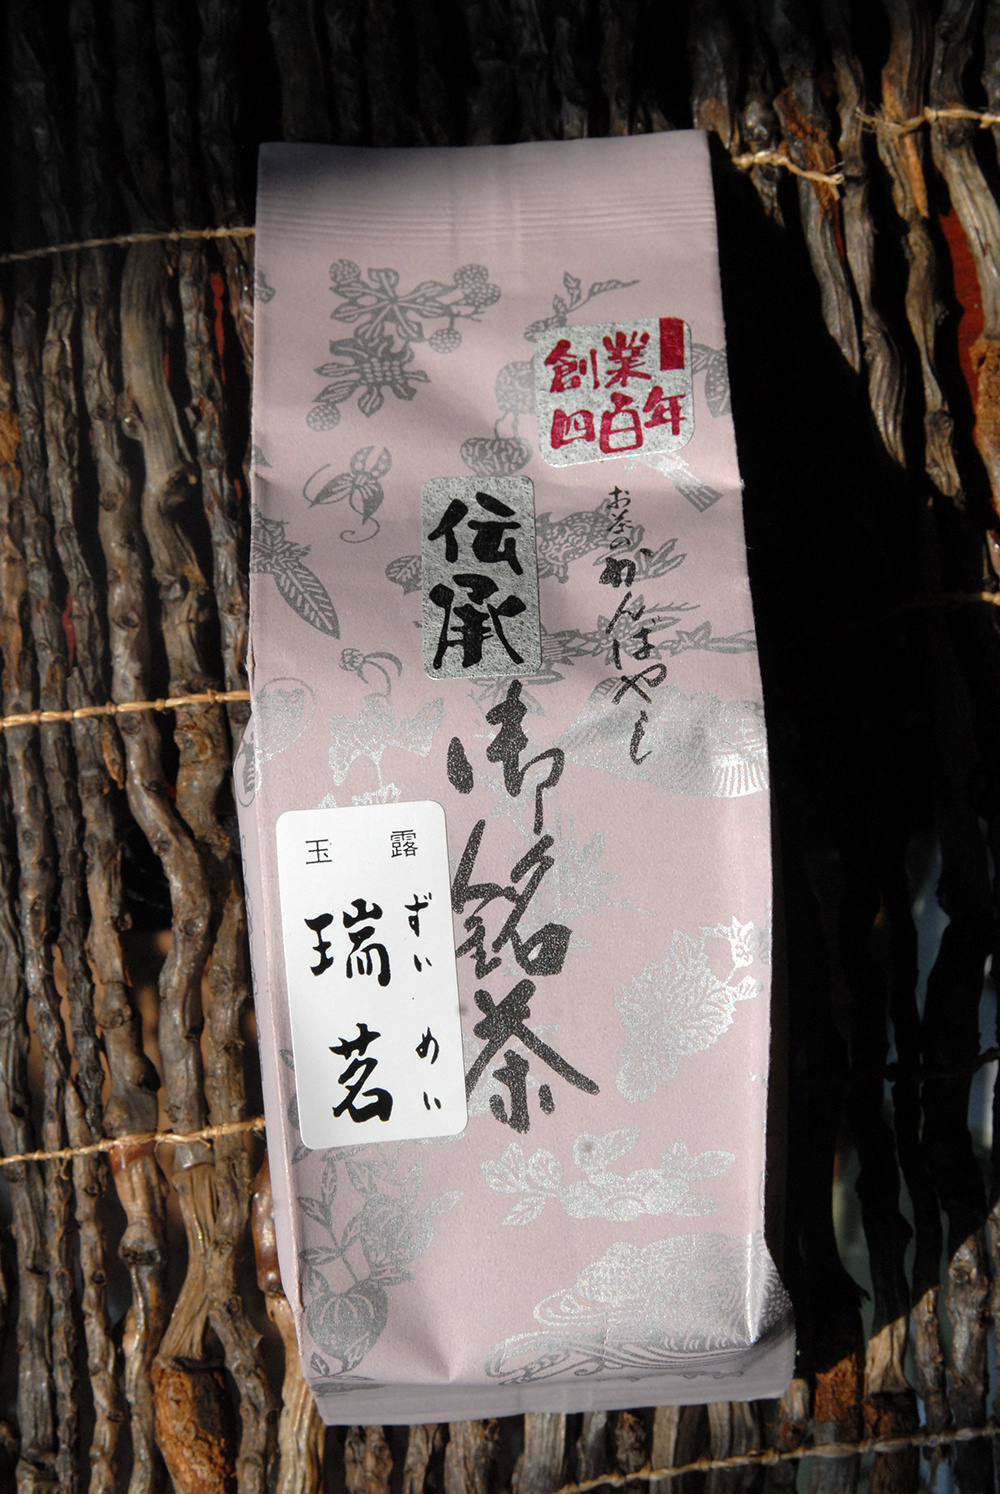 創業
四百年
お茶のかんばやし
伝承
御銘茶
玉露
瑞茗
ずいめい